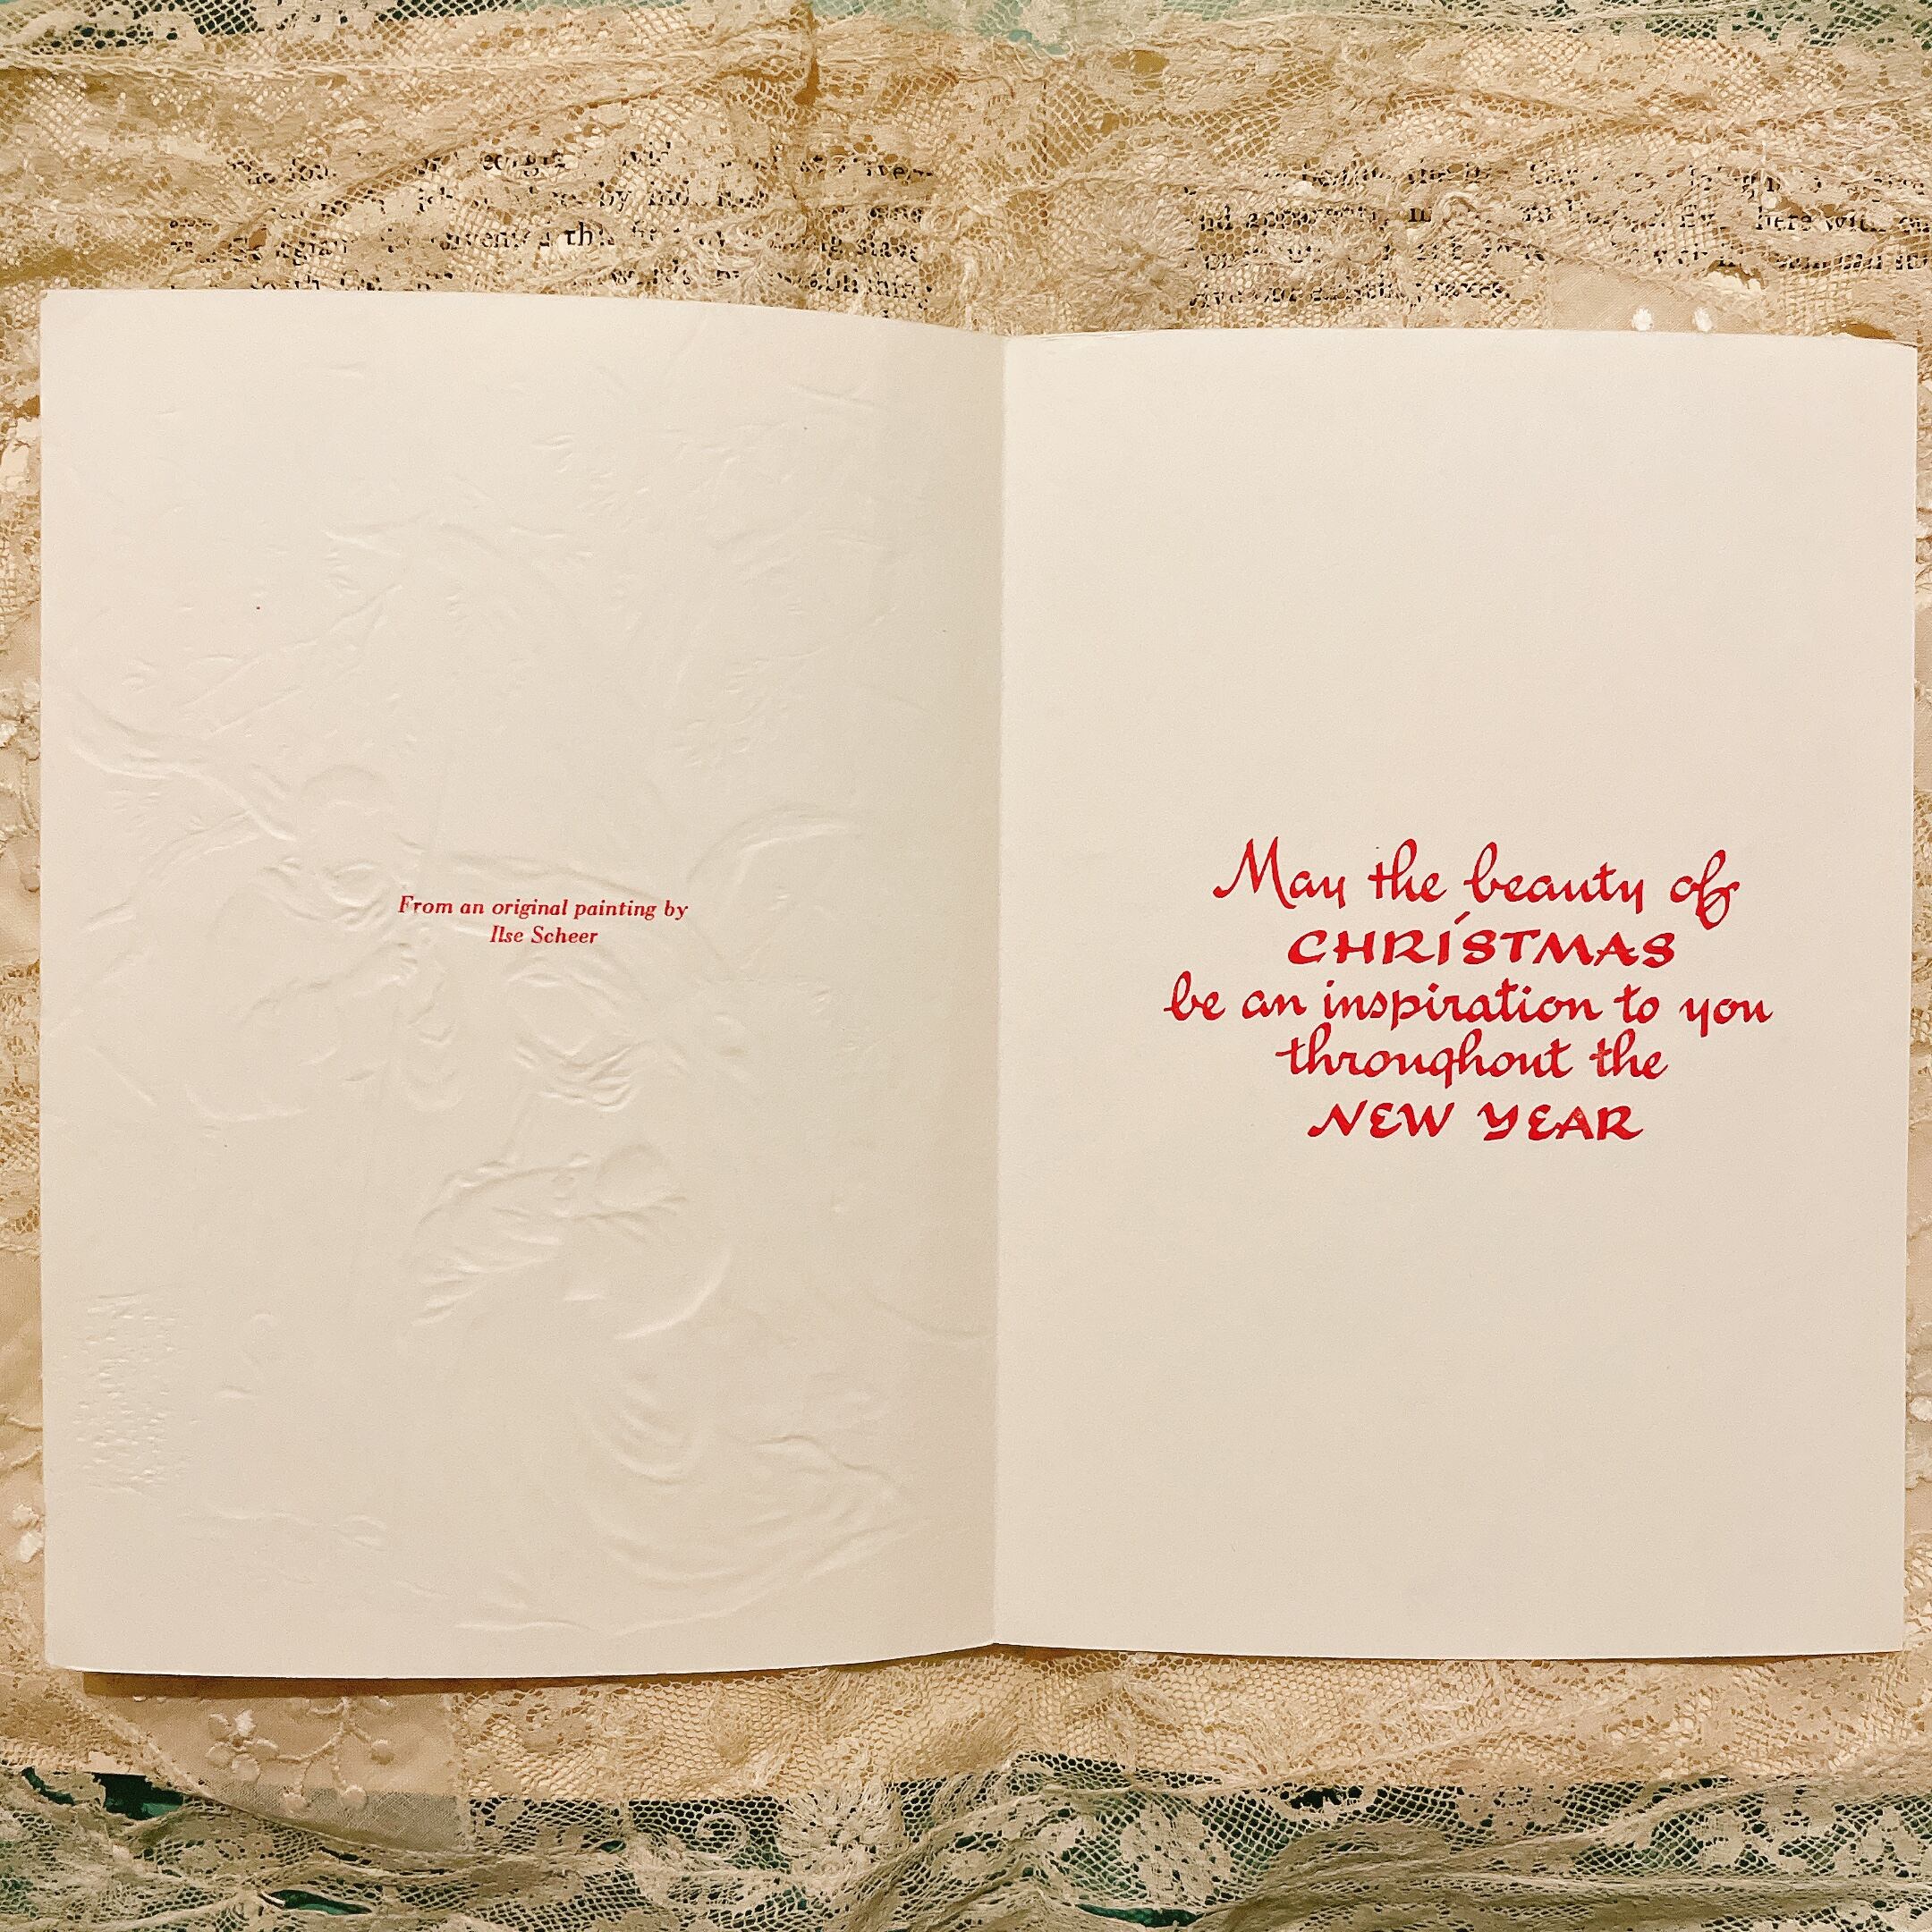 From an original painting by
Ilse Scheer
May the beauty of
CHRISTMAS
be an inspiration to you
throughout the
NEW YEAR